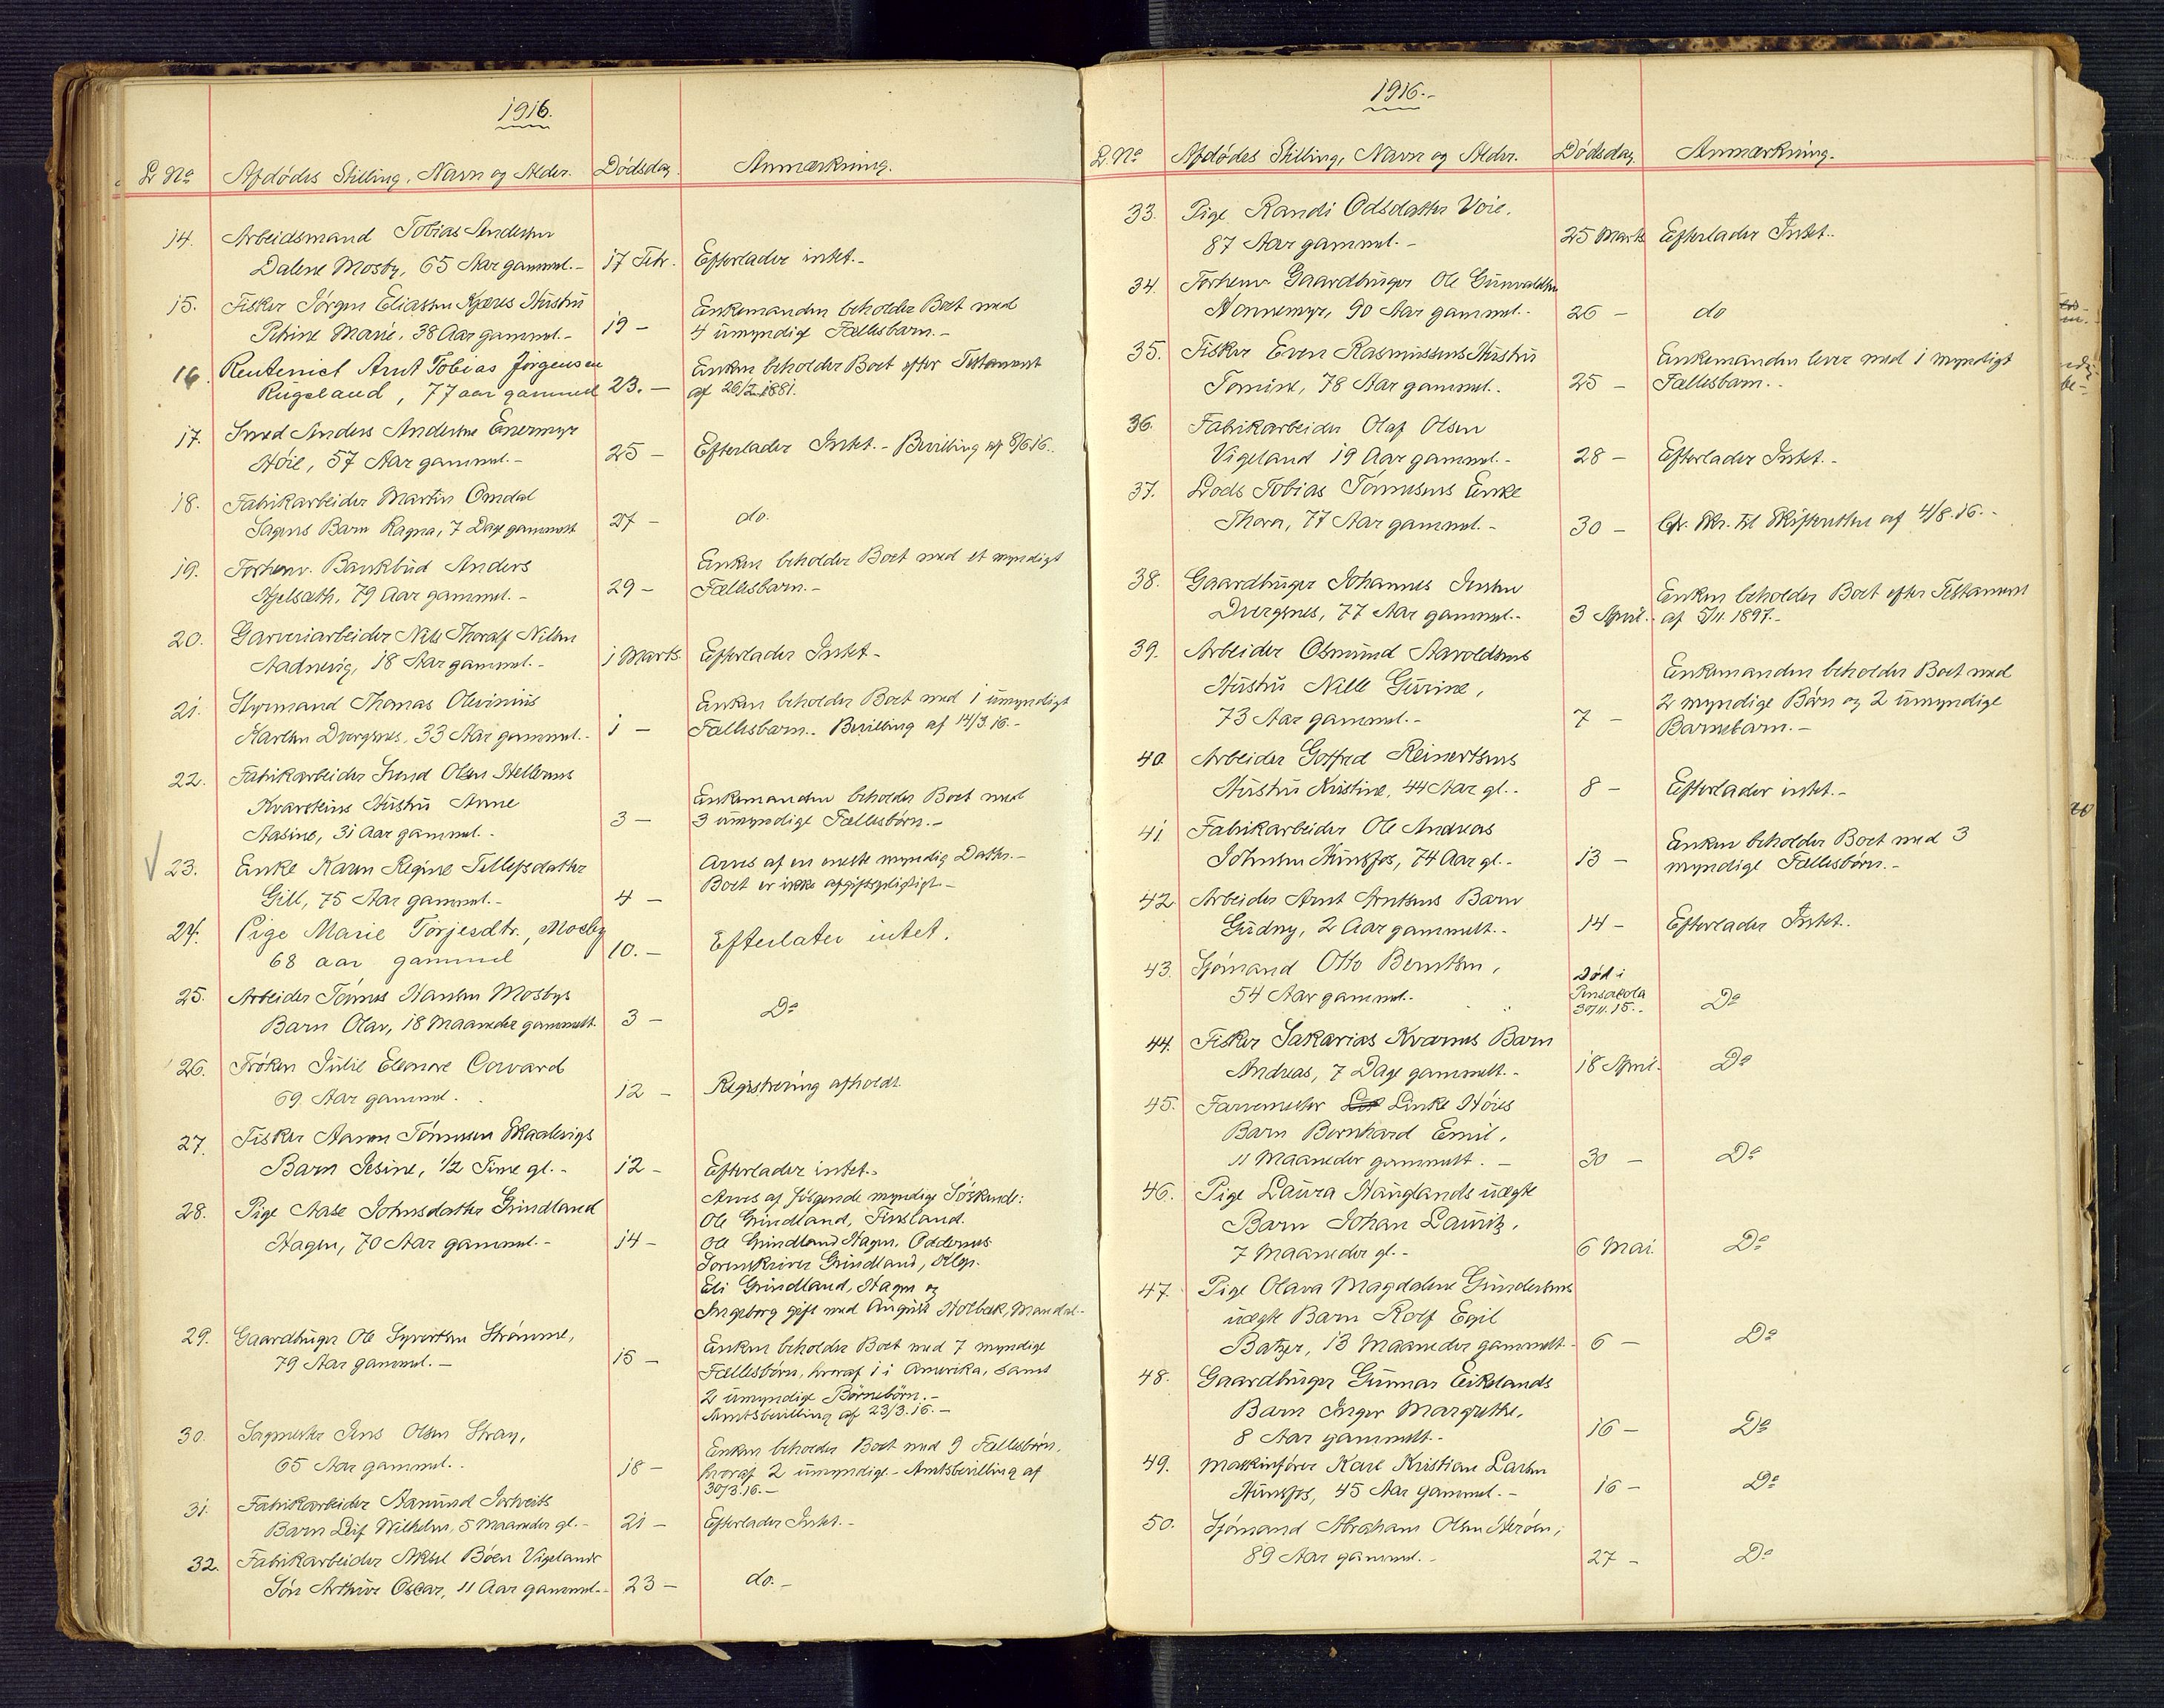 1916.
L No Afdødes Stilling, Navn og Alder. Dødsdag. Anmærkning.
14. Arbeidsmand Tobias Andersen
Dalene Mosby, 65 Aar gammel.- 17 Febr. Efterlader intet.-
15. Fisker Jørgen Eliassen Kjæres Hustru Enkemanden beholder Boet med
Petrine Marie, 38 Aar gammel.- 19 - 4 umyndige Fællesbarn.-
16. Rentenist Arnt Tobias Jørgensen Enken beholder Boet efter Testament
Rugeland, 77 aar gammel 23. - af 1881.
17. Smed Anders Andersen Enermyr
Høie, 57 Aar gammel.- 25 - Efterlader Intet.- Bevilling af 8/6 16.
18. Fabrikarbeider Martin Omdal
Sagens Barn Ragna, 7 Dage gammelt 27 - do.
19. Forhenv. Bankbud Anders Enken beholder Boet med et myndigt
Kjelsæth, 79 Aar gammel.- 29 - Fællesbarn.-
20. Garveriarbeider Nils Thoralf Nilsen
Aadnevig, 18 Aar gammel.- 1 Marts. Efterlader Intet.-
21. Styrmand Thomas Olevinius Enken beholder Boet med 1 umyndigt
Karlsen Dvergsnes, 33 Aar gammel.- 1 - Fællesbarn.- Bevilling af 14/3.16.-
22. Fabrikarbeider Svend Olsen Hellerens
Kvarsteins Hustru Anne Enkemanden beholder Boet med
Aasine, 31 Aar gammel.- 3 - 3 umyndige Fællesbørn.-
23. Enke Karen Regine Tellefsdatter Arves af en eneste myndig Datter.-
Gill, 75 Aar gammel.- 4 - Boet er ikke afgiftspligtigt.-
24. Pige Marie Torjesdtr., Mosby
68 aar gammel 10. - Efterlater intet.
25. Arbeider Tønnes Hansen Mosbys
Barn Olav, 18 Maaneder gammelt. 3 - Do
26. Frøken Julie Eleonore Corvard
69 Aar gammel. 12 - Registrering afholdt.
27. Fisker Aanen Tønnesen Skaalevigs
Barn Jesine, 1/2 Time gl.- 12 - Efterlader intet.-
28. Pige Aase Johnsdatter Grindland Arves af følgende myndige Søskende:
Hagen, 70 Aar gammel.- 14 - Ole Grindland, Finsland.
Ole Grindland Hagen, Oddernes
Sorenskriver Grindland,
Eli Grindland, Hagen og
Ingeborg gift med August Holbæk, Mandal.-
29. Gaardbruger Ole Syvertsen Strømme, Enken beholder Boet med 7 myndige
79 Aar gammel.- 15 - Fællesbørn, hvoraf 1 i Amerika, samt
2 umyndige Børnebørn.-
Amtsbevilling af 23/3.16.-
30. Sagmester Jens Olsen Stray, Enken beholder Boet med 9 Fællesbørn,
65 Aar gammel.. 18 - hvoraf 2 umyndige.- Amtsbevilling af
30/3.16.-
31. Fabrikarbeider Aanund Jortveits
Barn Leif Wilhelm, 5 Maaneder gl.- 21 - Efterlader Intet.-
32. Fabrikarbeider Aksel Bøen Vigelands
Søn Arthur Oscar, 11 Aar gammel.- 23 - do.-
1916.-
L. No Afdødes Stilling, Navn og Alder. Dødsdag. Anmærkning.
33. Pige Randi Odsdatter Voie.
87 Aar gammel.- 25 Marts Efterlader Intet.
34. Forhenv Gaardbruger Ole Gunvaldsen
Honnemyr, 90 Aar gammel.- 26 - do
35. Fisker Even Rasmussens Hustru Enkemanden lever med 1 myndigt
Tomine, 78 Aar gammel. 25 - Fællesbarn.-
36. Fabrikarbeider Olaf Olsen
Vigeland 19 Aar gammel.- 28 - Efterlader Intet.-
37. Lods Tobias Tønnesens Enke
Thora, 77 Aar gammel.- 30 - Cfr. Skr. til Skifteretten af 4/8.16.-
38. Gaardbruger Johannes Jensen Enken beholder Boet efter Testament
Dvergsnes, 77 Aar gammel.- 3 April. af 5/11.1897.-
39. Arbeider Osmund Aaroldsens Enkemanden beholder Boet med
Hustru Nille Gurine, 2 myndige Børn og 2 umyndige
73 Aar gammel.- 7 - Barnebarn.-
40. Arbeider Gotfred Reinertsens
Hustru Kristine, 44 Aar gl.- 8 - Efterlader intet.-
41. Fabrikarbeider Ole Andreas Enken beholder Boet med 3
Johnsen Hunsfos, 74 Aar gl.- 13 - myndige Fællesbørn.-
42. Arbeider Arnt Arntsens Barn
Gudny, 2 Aar gammelt.- 14 - Efterlader Intet.
43. Sjømand Otto Berntsen, Død i
54 Aar gammel.- Pensacola Do
30/11.15.-
44. Fisker Sakarias Kvarnes Barn
Andreas, 7 Dage gammelt.- 18 April. Do
45. Farvemester Linke Høies
Barn Bernhard Emil,
11 Maaneder gammelt.- 30 - Do
46. Pige Laura Hauglands uægte
Barn Johan Lauritz,
7 Maaneder gl.- 6 Mai. Do
47. Pige Olava Magdalene Gundersens
uægte Barn Rolf Egil
Batzer, 13 Maaneder gammelt.- 6 - Do
48. Gaardbruger Gunnar Eikelands
Barn Inger Margrethe,
8 Aar gammelt.- 16 - Do
49. Maskinfører Karl Kristian Larsen
Hunsfos, 45 Aar gammel.- 16 - Do
50. Sjømand Abraham Olsen Herøen,
89 Aar gammel.- 27 - Do